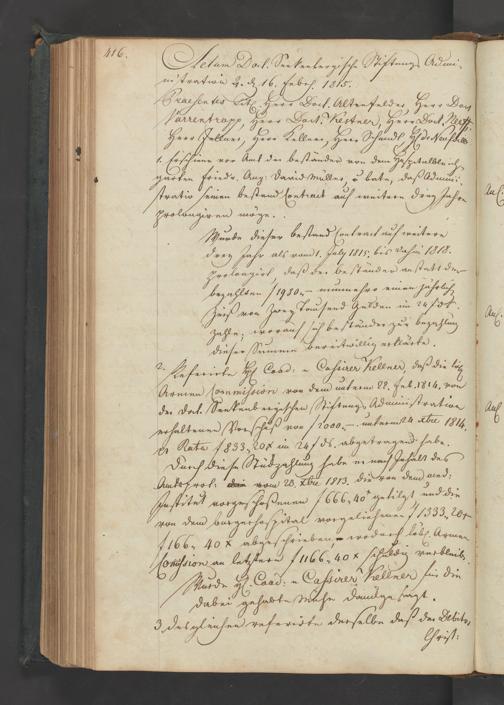 416.
Actum Doct. Senkenbergische Stiftungs Admi-
nistration d. d. 16. Febr. 1815.
Praesentes Tit. Herr Doct. Altenfelder, Herr Doct.
Varrentrapp, Herr Doct. Kestner, Herr Doct. Neeff
Herr Kellner, Herr
1. Erschiene vor Amt der Beständer von dem Hospitalbleich
garten Friedr. Aug. David Müller, u. bate, daß Admini-
stratio seinen Bestand Contract auf weitere drey Jahre
prolongiren möge.
Wurde dieser Bestand Contract auf weitere
drey Jahr als vom 1. July 1815, bis dahin 1818.
prolongirt, daß der Beständer anstatt der
bezahlten f 1930,- nunmehro einen jährlich
Zinß von Zwey Tausend Gulden im 24 f Fß.
zahle, worauf sich Beständer zur Bezahlung
dieser Summe bereitwillig erklärte.
2. Referirte Cassirer Kellner, daß die löbl.
Armen Commission von dem unterm 28. 1814. von
der Doct. Senkenbergischen Stiftungs Administration
erhaltenen Vorschuß von f 2000,- unterm 24. xbre 1814.
Rata f 833,20 x im 24 f Fs. abgetragen habe.
Durch diese Rückzahlung habe er nach Inhalt des
Amtsprot. vom 20. xbre 1813. die von dem med:
Institut vorgeschossenen f 666,40 getilgt und die
von dem Bürgerhospital vorgeliehenen f 1333.20 x
f 166. 40 x abgeschrieben, wodurch löbl. Armen
Commission an letzterm f 1166,40 x schuldig verbleibt.
Wurde Cassirer Kellner für die
dabei gehabte Mühe Danck gesagt.
3 desgleichen referirte derselbe daß der Debitor
Christ: